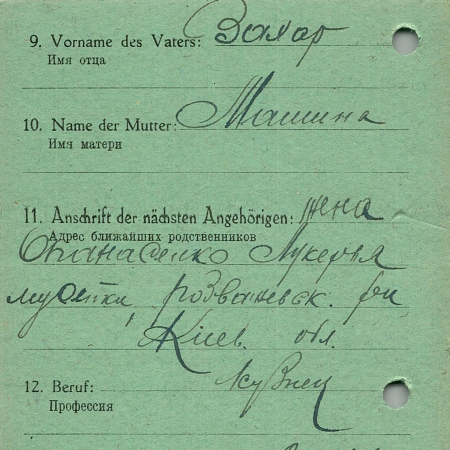 9. Vorname des Vaters: Захар
Имя отца
10. Name der Mutter: Машина
Имя матери
11. Anschrift der nächsten Angehörigen: жена
Адрес ближайших родственников
Опанасенко Лукерья
Розважевск. рн
Киев. обл.
12. Beruf: кузнец
Профессия